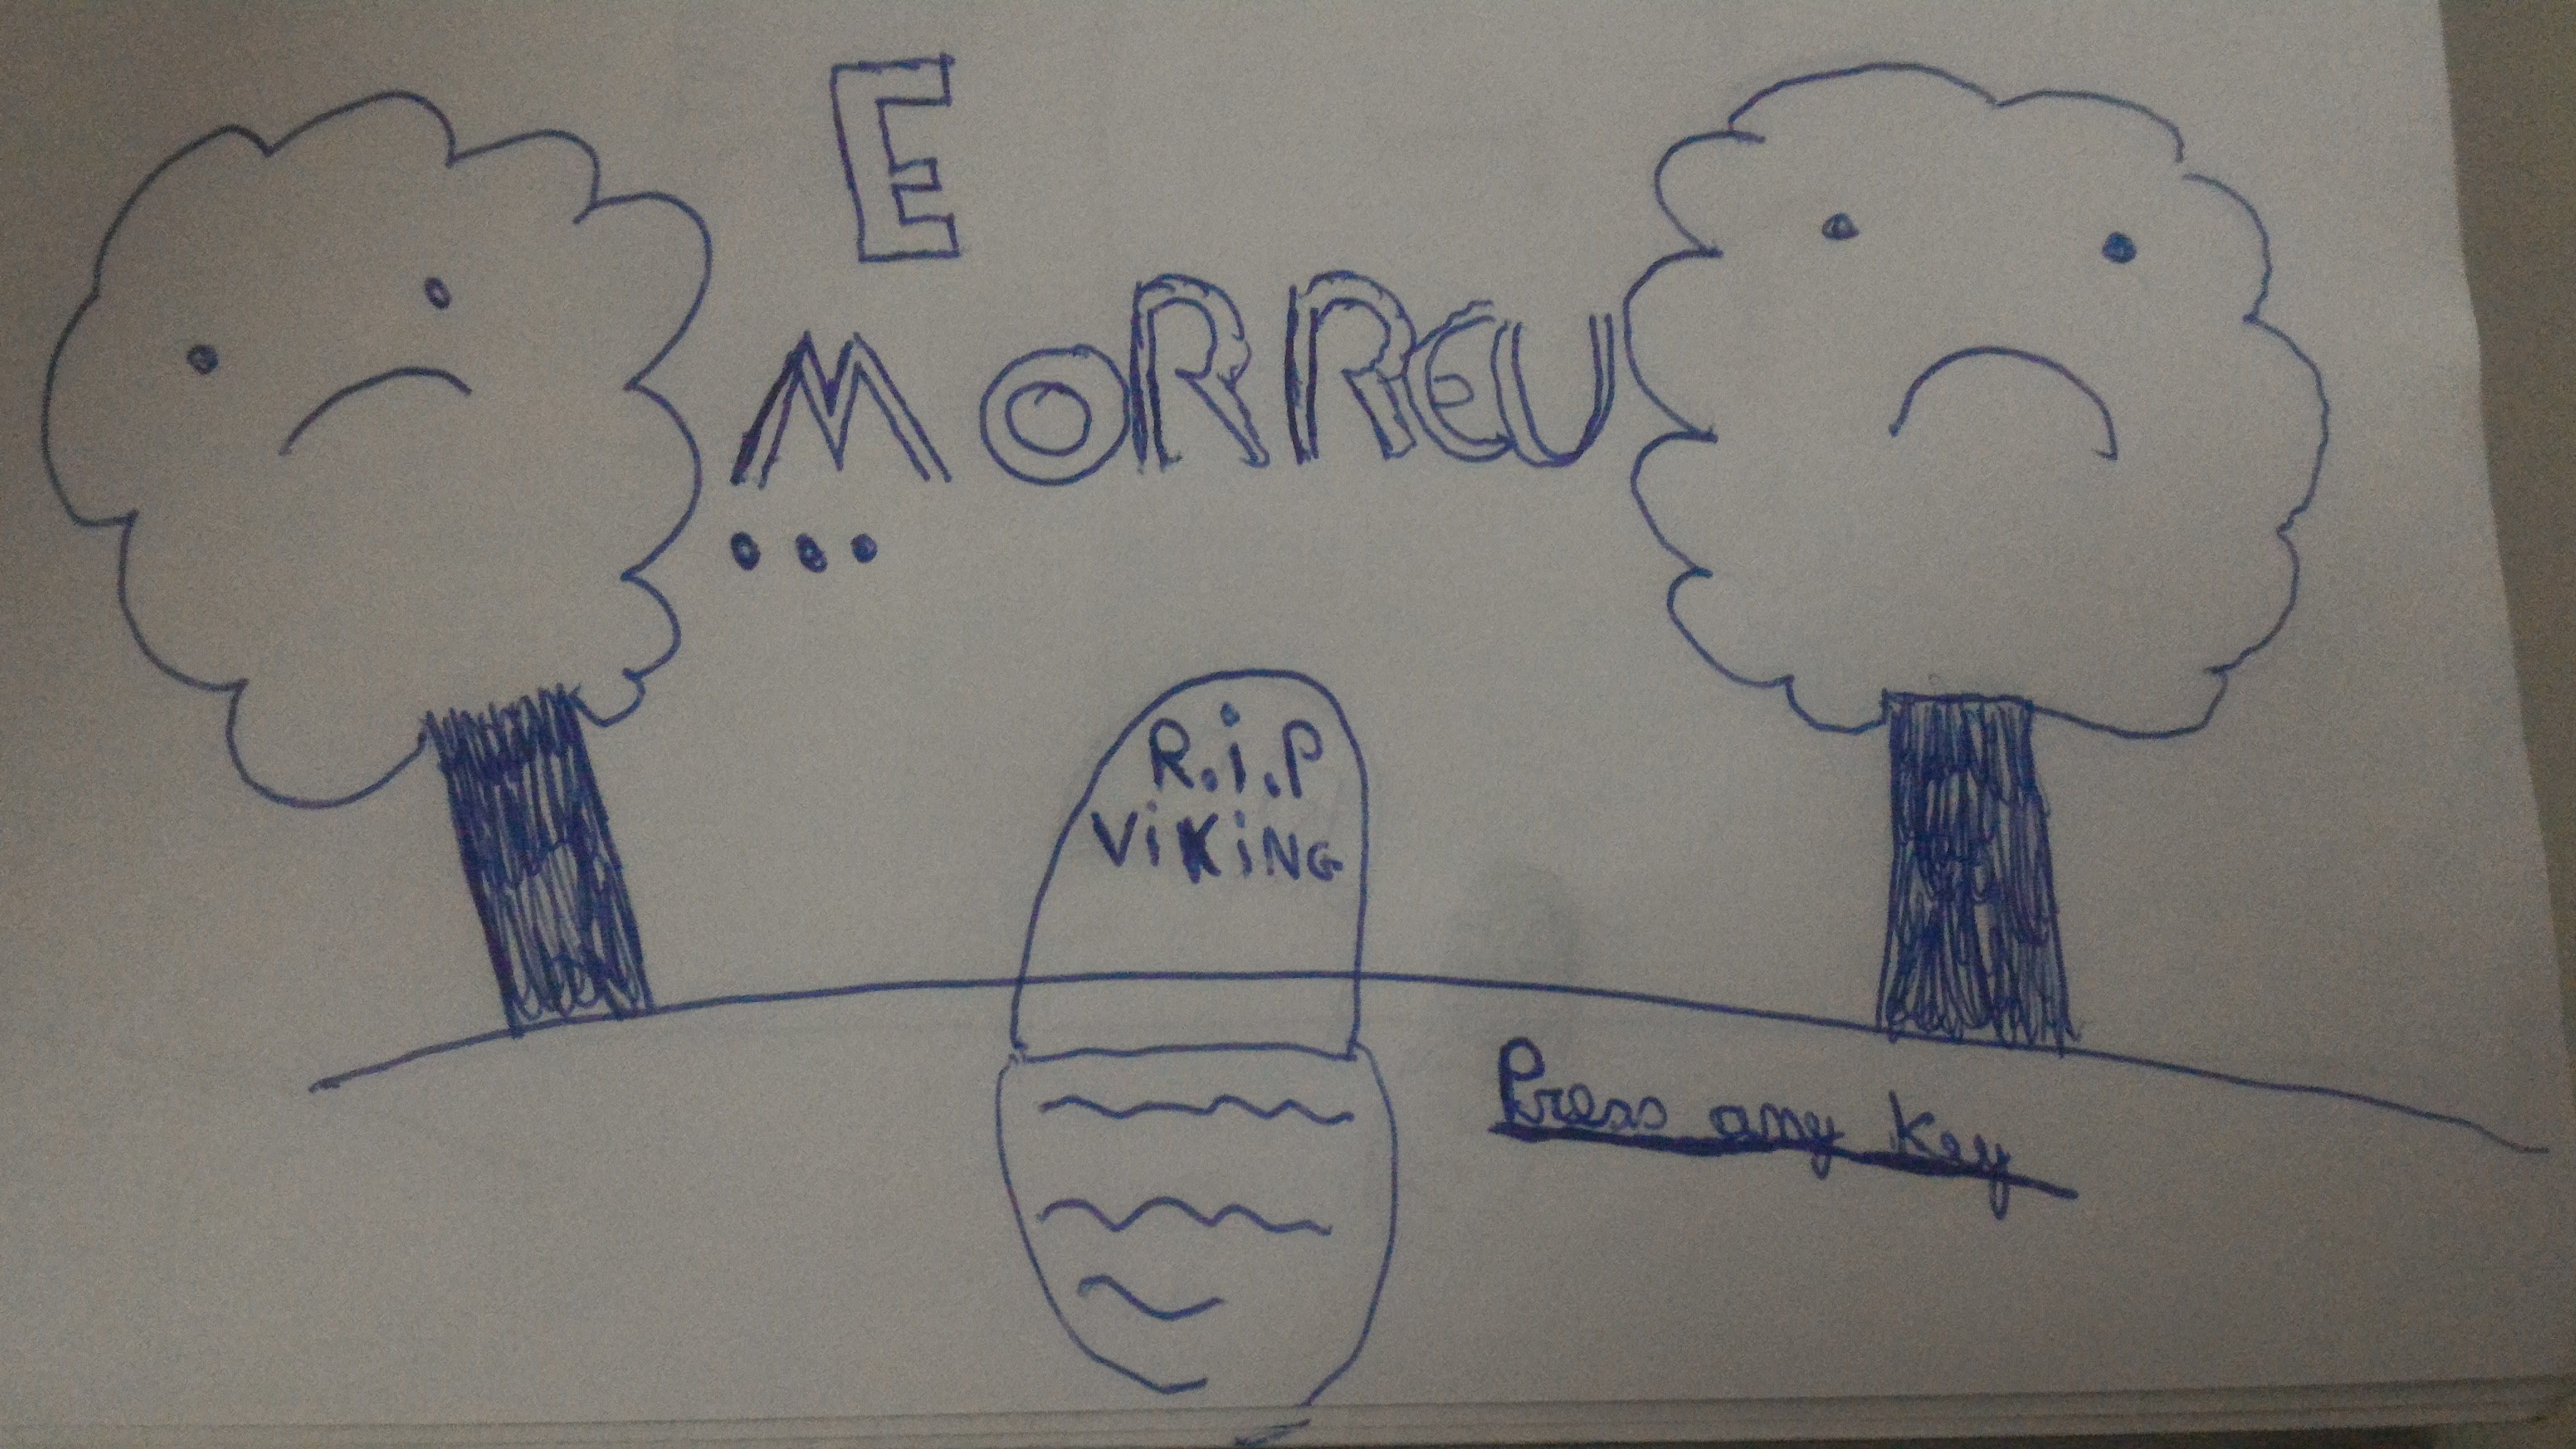 E
MORREU
...
R.i.P
ViKiNG
Press any key